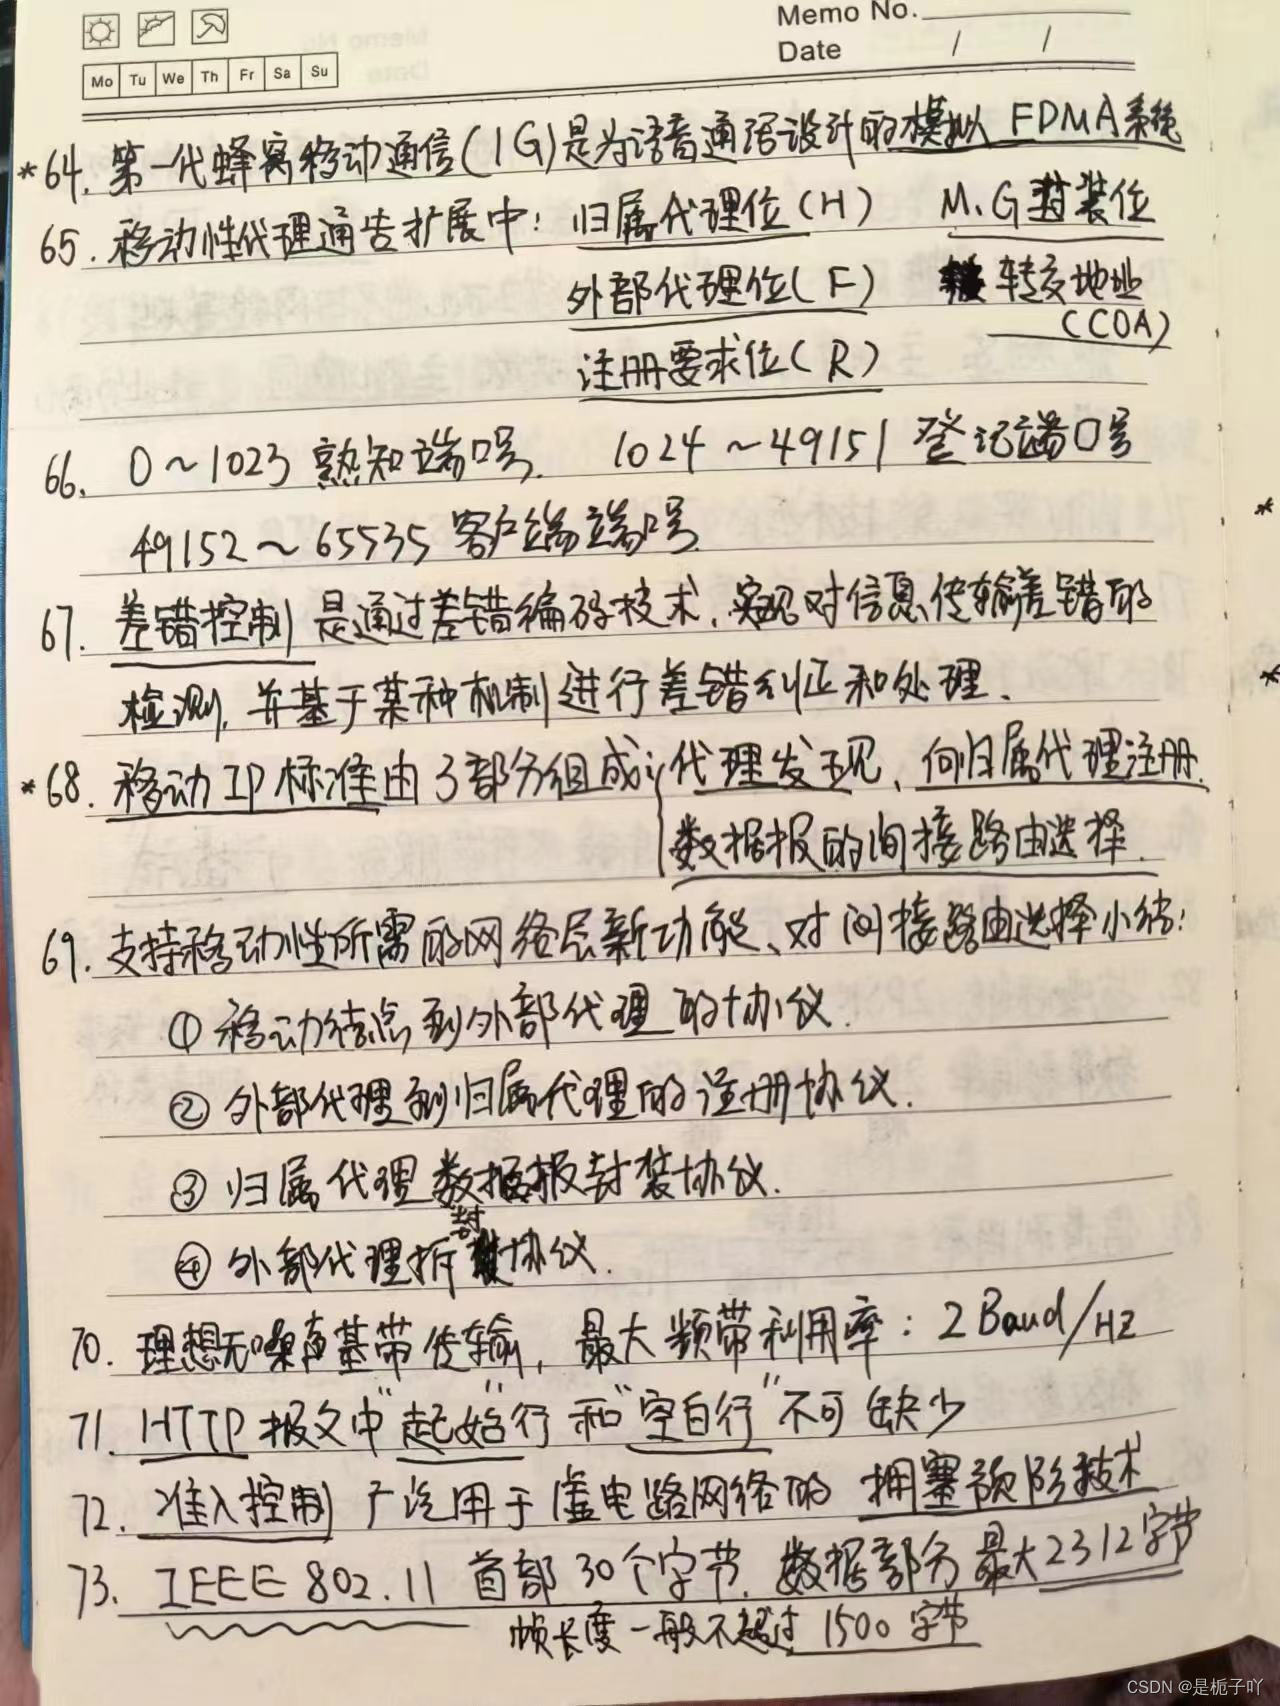 Memo No.
Date / /
Mo Tu We Th Fr Sa Su
*64. 第一代蜂窝移动通信(1G)是为话音通话设计的模拟 FDMA系统
65. 移动性代理通告扩展中: 归属代理位(H) M.G封装位
外部代理位(F) 转交地址
(COA)
注册要求位(R)
66. 0~1023 熟知端口号. 1024~49151 登记端口号
49152~65535 客户端端口号.
67. 差错控制 是通过差错编码技术, 实现对信息传输差错的
检测, 并基于某种机制进行差错纠正和处理.
*68. 移动IP标准由3部分组成: 代理发现、向归属代理注册.
数据报的间接路由选择.
69. 支持移动性所需的网络层新功能、对间接路由选择小结:
① 移动结点到外部代理的协议.
② 外部代理到归属代理的注册协议.
③ 归属代理数据报封装协议.
④ 外部代理拆封协议.
70. 理想无噪声基带传输, 最大频带利用率: 2Baud/HZ
71. HTTP报文中“起始”行和“空白行”不可缺少
72. 准入控制 广泛用于虚电路网络的 拥塞预防技术
73. IEEE 802.11 首部30个字节. 数据部分最大2312字节
帧长度一般不超过 1500字节
CSDN @是栀子吖